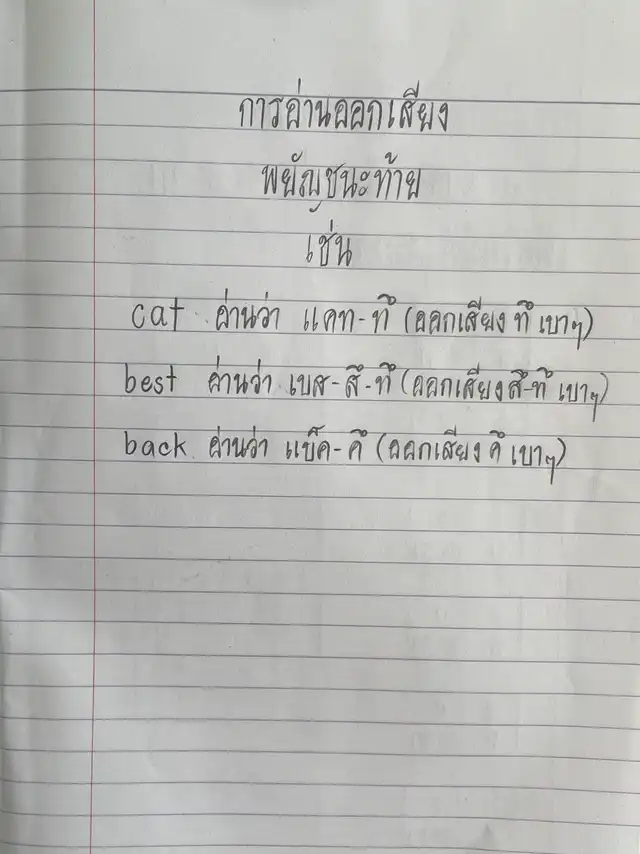 การอ่านออกเสียง
พยัญชนะท้าย
เช่น
cat อ่านว่า แคท-ทึ (ออกเสียง ทึ เบาๆ)
best อ่านว่า เบส-สึ-ทึ (ออกเสียง สึ-ทึ เบาๆ)
back อ่านว่า แบ็ค-คึ (ออกเสียง คึ เบาๆ)